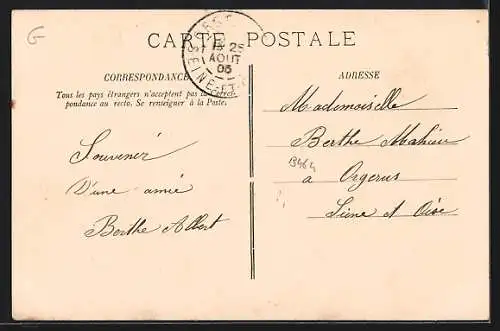 CARTE POSTALE
25
AOUT
05
SEINE-ET-
CORRESPONDANCE
Tous les pays étrangers n'acceptent pas la Corres-
pondance au recto. Se renseigner à la Poste.
ADRESSE
Souvenir
D'une amie
Berthe Albert
Mademoiselle
Berthe Mahieu
à Orgerus
Seine et Oise